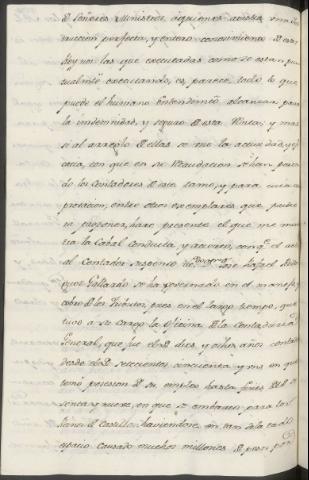 Señores Ministros, aquienes assiste una ins
truccion perfecta, y entero conocimiento de estas
Leyes con las que executadas como se estan pun
tualmte executando, es, parece, todo lo que
puede el humano Entendimto alcanzar para
la indemnidad, y seguro de esta Renta; y mas
si al arreglo de ellas se une la actividad, y efi
cacia, con que en su Recaudacion se han porta
do los Contadores de este ramo, y para cuia com
provacion, entre otros exemplares que pudie
ra proponer, hare presente el que me minis
tra la Cabal Conducta, y acierto, con qe el actu
al Contador Dn Jose Rafael Rodri
guez Gallardo se ha gestionado en el manejo y
cobro de los tributos, pues en el largo tiempo, que
tuvo a su cargo la Oficina de la Contaduria
General, que fue el de dies, y ocho años contados
desde el de setecientos cincuenta, y uno en que
tomó posesion de su empleo hasta fines del de se
senta y nueve, en que se embarcó para los
Reinos de Castilla, haviendose, en tan dilatado
espacio causado muchos millones de pesos por